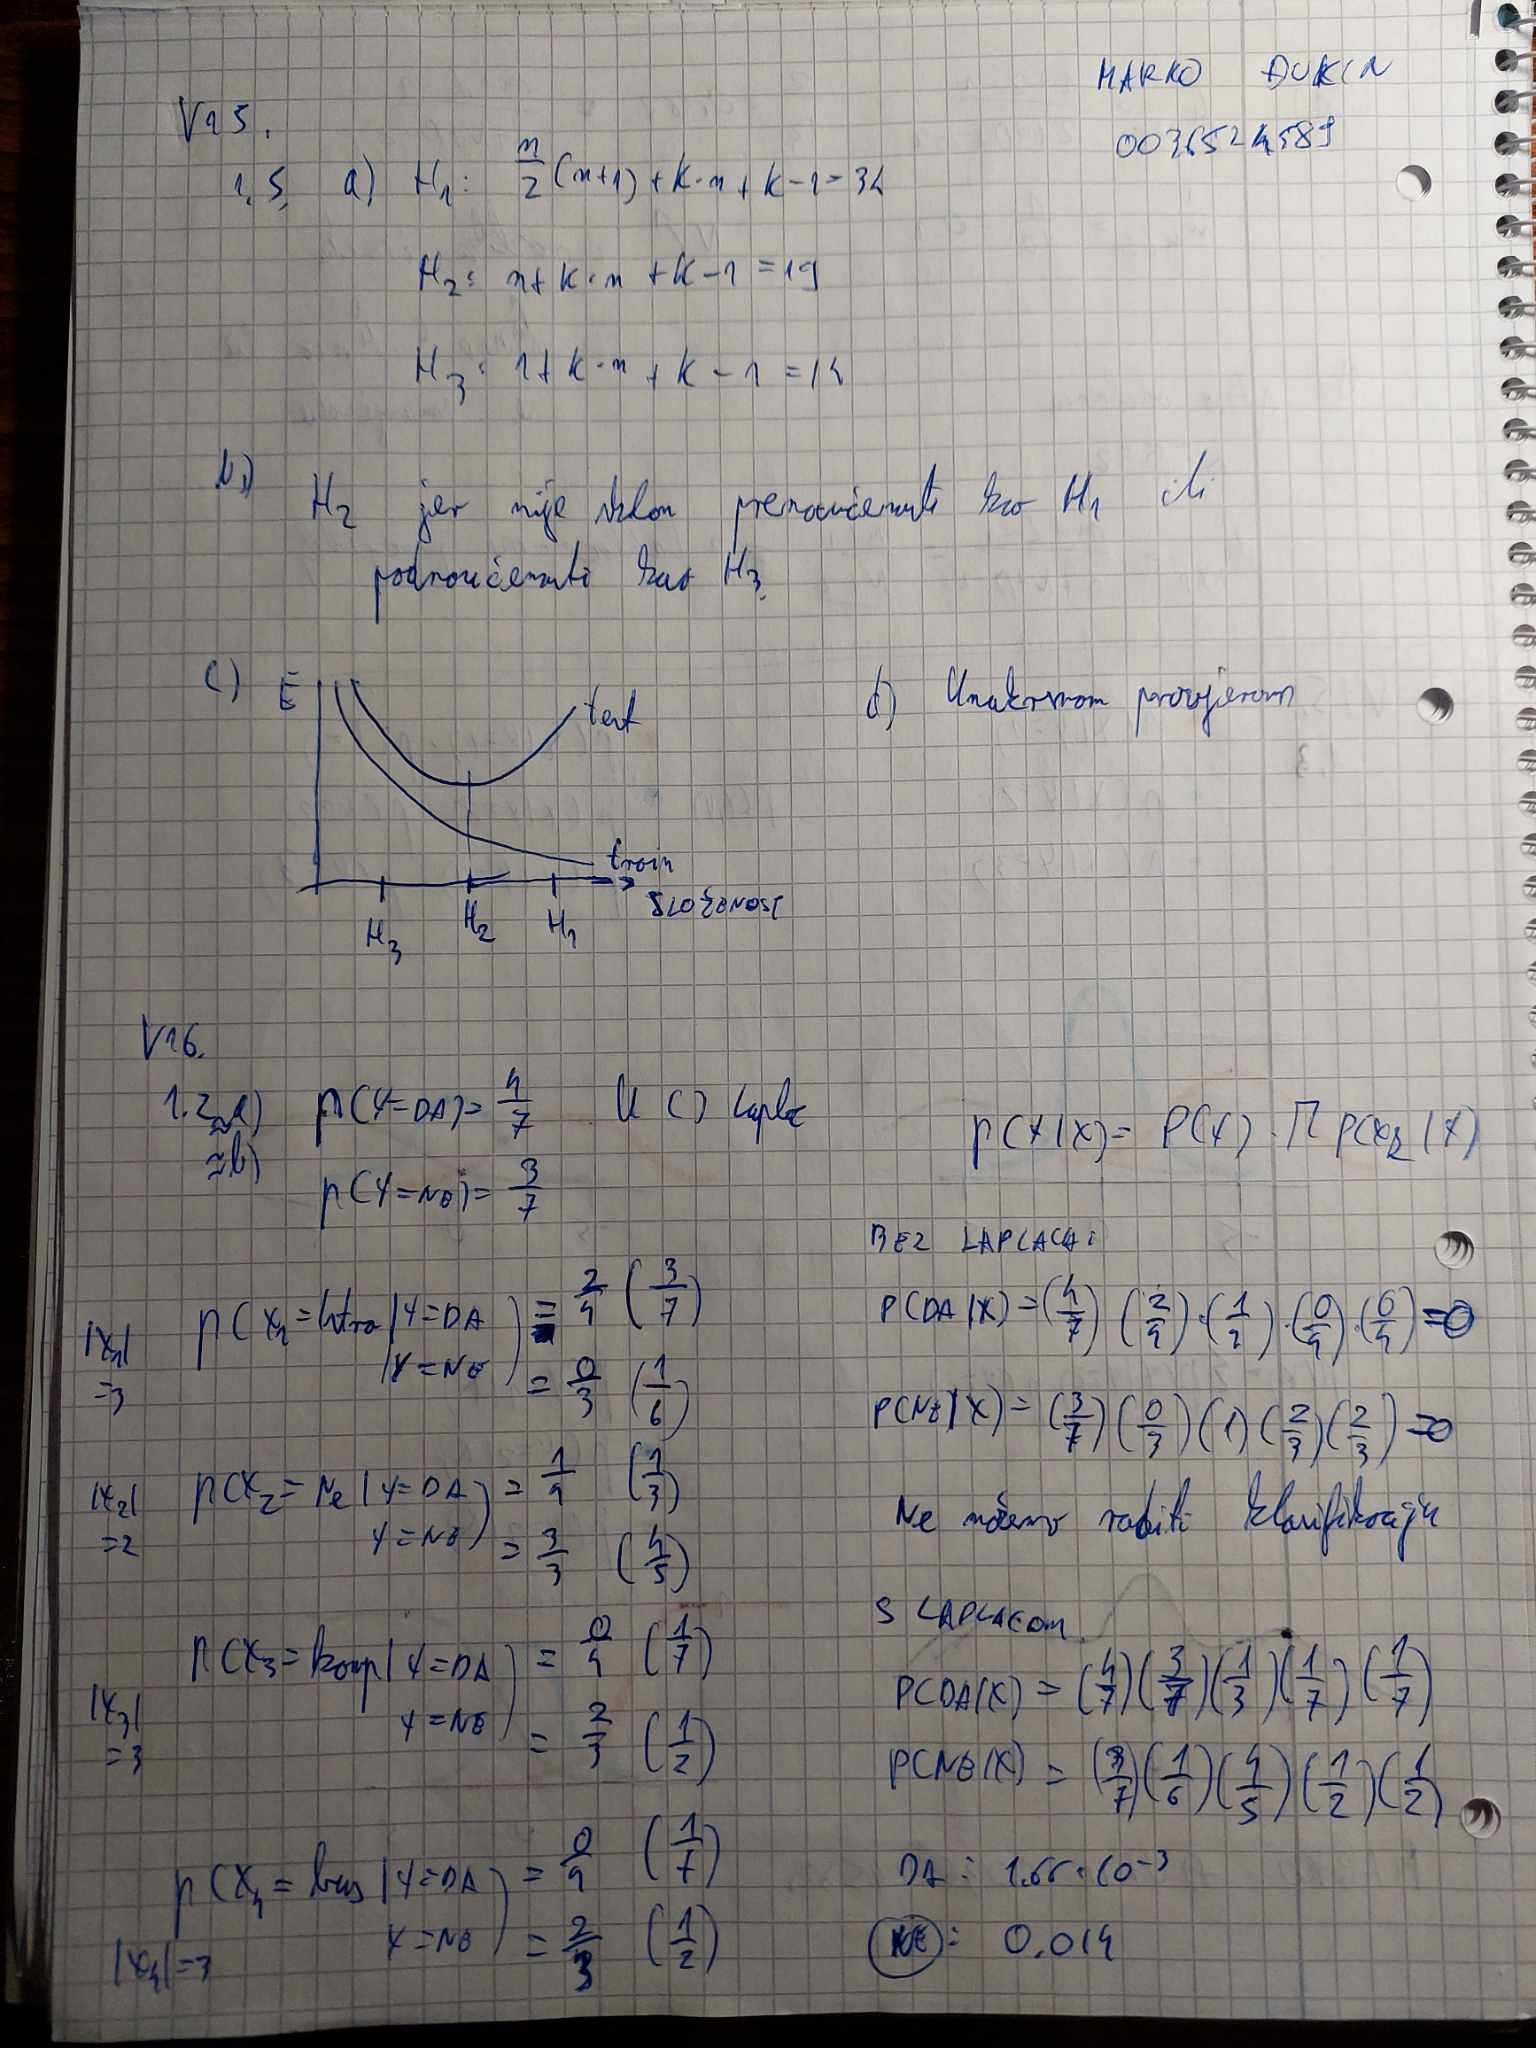 MARKO ĐUKIN
V15.
1.5. a) H₁: n/2 (n+1) + k·n + k-1 = 34
H₂: n + k·n + k-1 = 19
H₃: 1 + k·n + k-1 = 14
b) H₂ jer nije sklon prenaučenosti kao H₁ ili
podnaučenosti kao H₃
c) E test
d) Unakrsnom provjerom
train
SLOŽENOST
H₃ H₂ H₁
V16.
1.2. a) p(Y=DA) = 4/7 U ( ) Laplace
b) p(Y=NE) = 3/7
p(Y|X) = P(Y) · Π p(xₖ|Y)
|x₁| =3 p(x₁=Istra | Y=DA) = 2/4 (3/7)
| Y=NE) = 0/3 (1/6)
|x₂| =2 p(x₂=Ne | Y=DA) = 1/4 (1/3)
Y=NE) = 3/3 (4/5)
|x₃| =3 p(x₃=kamp | Y=DA) = 0/4 (1/7)
Y=NE) = 2/3 (1/2)
p(x₄=bus | Y=DA) = 0/4 (1/7)
|x₄|=3 Y=NE) = 2/3 (1/2)
BEZ LAPLACA:
P(DA|X) = (4/7) (2/4) · (1/2) · (0/4) · (0/4) = 0
P(NE|X) = (3/7) (0/3) (1) (2/3) (2/3) = 0
Ne možemo raditi klasifikaciju
S LAPLACEOM
P(DA|X) = (4/7) (3/7) (1/3) (1/7) (1/7)
P(NE|X) = (3/7) (1/6) (4/5) (1/2) (1/2)
DA: 1.66·10⁻³
NE: 0.014